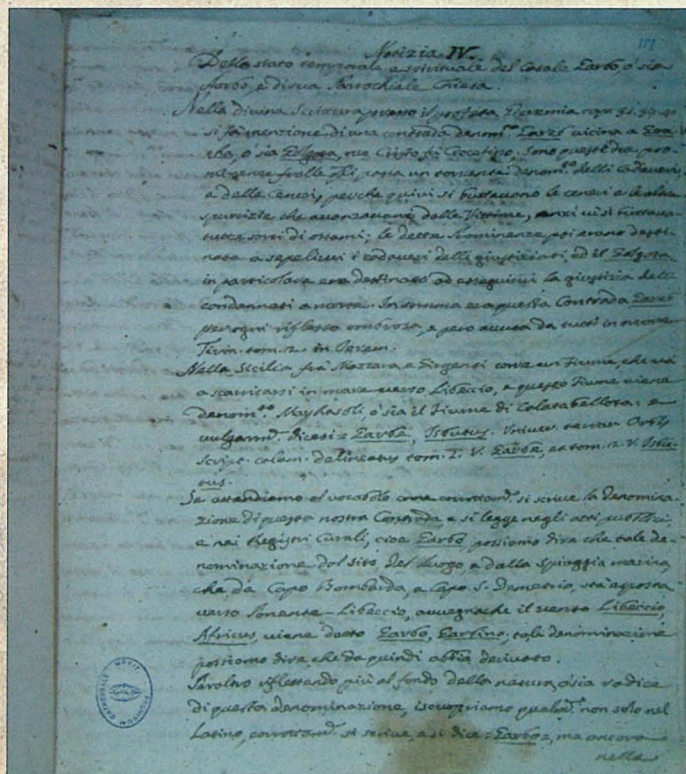 Notizia IV.
Dello stato temporale, e spirituale del Casale Garbo, ó sia
Garbo, e di sua Parochiale Chiesa.
Nella divina Scrittura presso il profeta Gieremia cap. 31. 39. 40
si fa menzione di una contrada denom.ta Garbo vicina a
ó sia Golgota, ove Cristo fù Crocefisso, sono queste due pro-
minenze fralle passa un torrente denom.to delli cadaveri,
e delle Ceneri, perche quivi si buttavono le ceneri e le altre
sporcizie che avanzavano dalle Vittime, anzi vi si buttava
tutta sorti di ossami; le dette Prominenze poi erano desti-
nate a sepelirvi i cadaveri delli giustiziati, ed il Golgota
in particolare era destinato ad esseguirvi la giustizia delli
condannati a morte. In somma era questa Contrada Garbo
per ogni riflesso ombrosa, e però avuta da tutti in orrore
Tirin. tom. 2. in Jerem.
Nella Sicilia frà Mazzara e Girgenti corre un Fiume, che và
a scarricarsi in mare verso Libeccio, e questo Fiume viene
denom.to ó sia il Fiume di Calatabellota: e
vulgarm.e dicesi = Garbe, Isburus. Orbis
Script. colam. delineatus tom. 2. V. Garbe, et tom. 2. V. Isbu-
rus.
Se attendiamo al vocabolo come si scrive la denomina-
zione di questa nostra Contrada, e si legge negli atti publici,
e nei Registri Curali, cioe Garbo, possiamo dire che tale de-
nominazione dal sito del Luogo, e dalla Spiaggia marina
che da Capo Bombarda, a Capo S. Demetrio, sta esposta
verso Ponente-Libeccio, avvegnache il vento Libeccio,
Africus, viene detto Garbo, Garbino; tale denominazione
possiamo dire che da quindi abbia derivato.
Peraltro riflettendo più al fondo della natura, ó sia radice
di questa denominazione, iscopriamo qualm.e non solo nel
Latino, si scrive, e si dice = Garbo =, ma ancora
nella